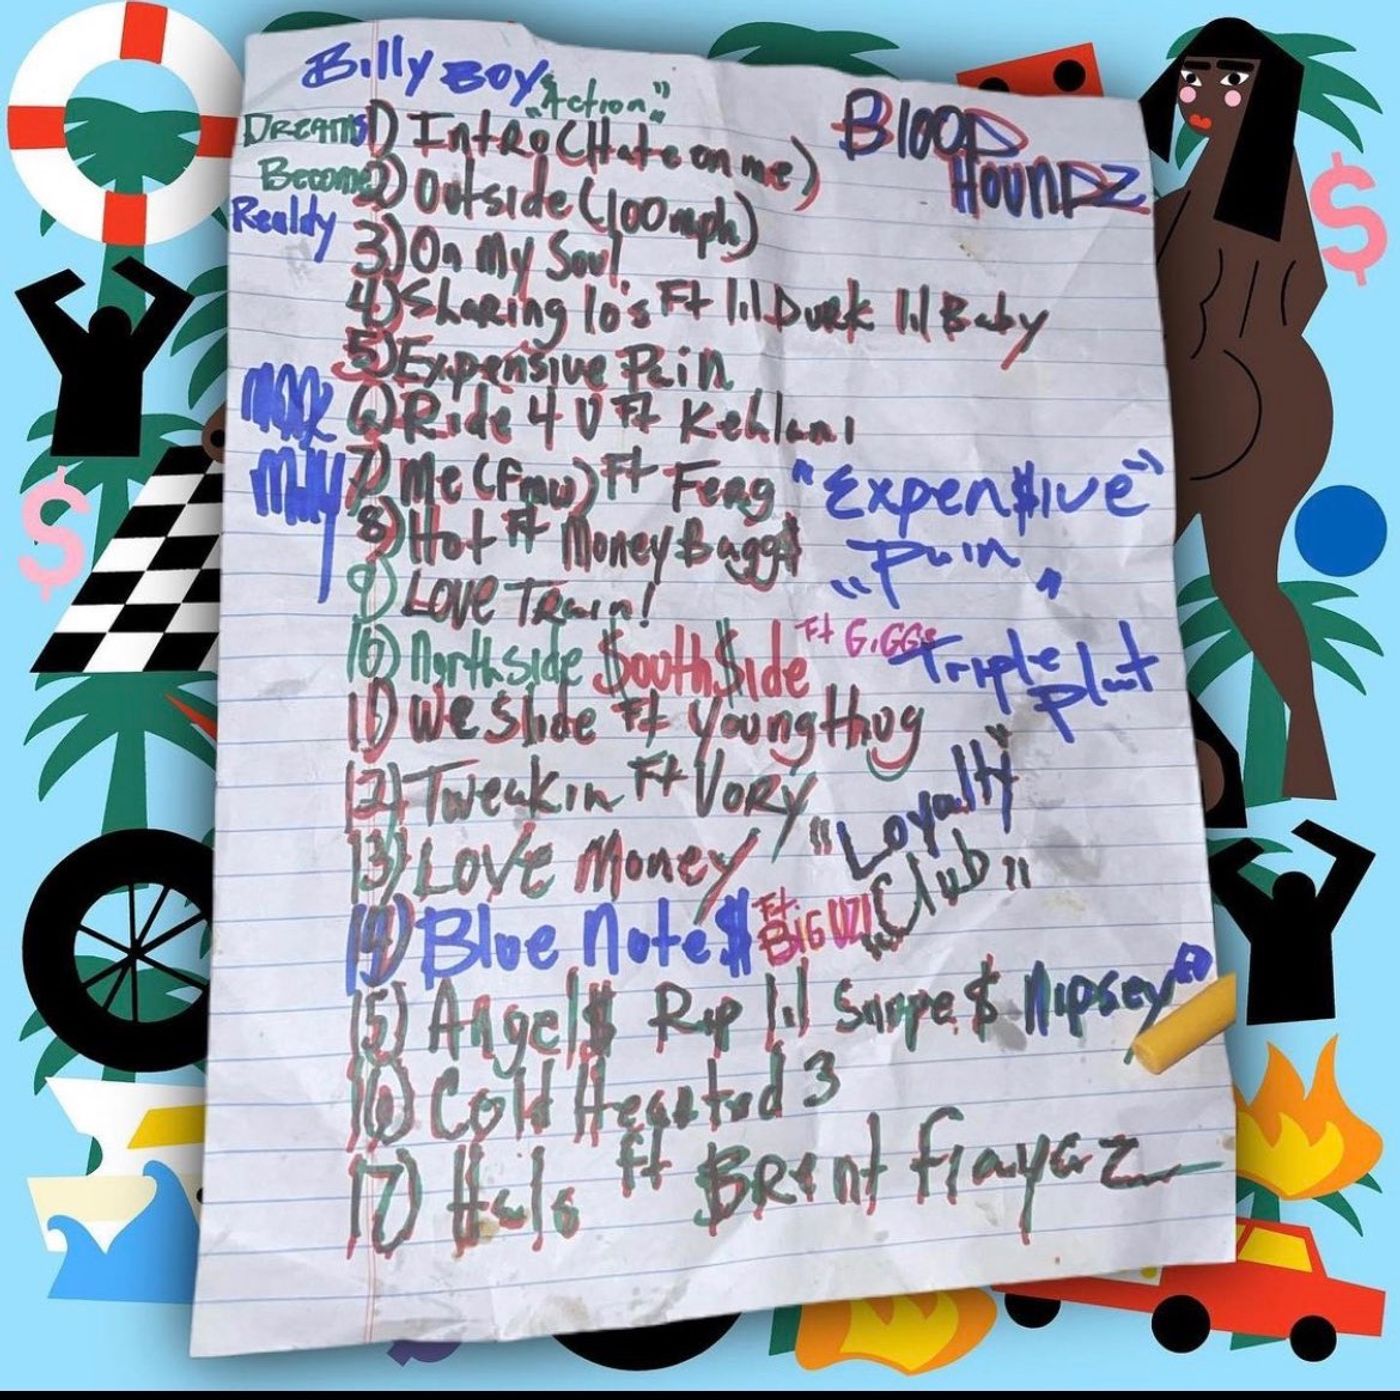 Billy Boy
"Action"
Blood
Houndz
Dreams
Become
Reality
1) Intro (Hate on me)
2) Outside (100mph)
3) On My Soul
4) Sharing lo's Ft lil Durk lil Baby
5) Expensive Pain
6) Ride 4 U Ft Kehlani
7) Me (Fmw) Ft Ferg
"Expen$ive
Pain"
8) Hot Ft MoneyBagg$
9) Love Train!
10) Northside $outh$ide Ft GiGGs
Triple
Plat
11) We Slide Ft Young thug
12) Tweakin Ft Vory
13) Love Money
"Loyalty"
"Club"
14) Blue Note$ Ft. BiG UZI
15) Angel$ Rip lil Snupe $ Nipsey
16) Cold Hearted 3
17) Halo ft Brent fiayaz